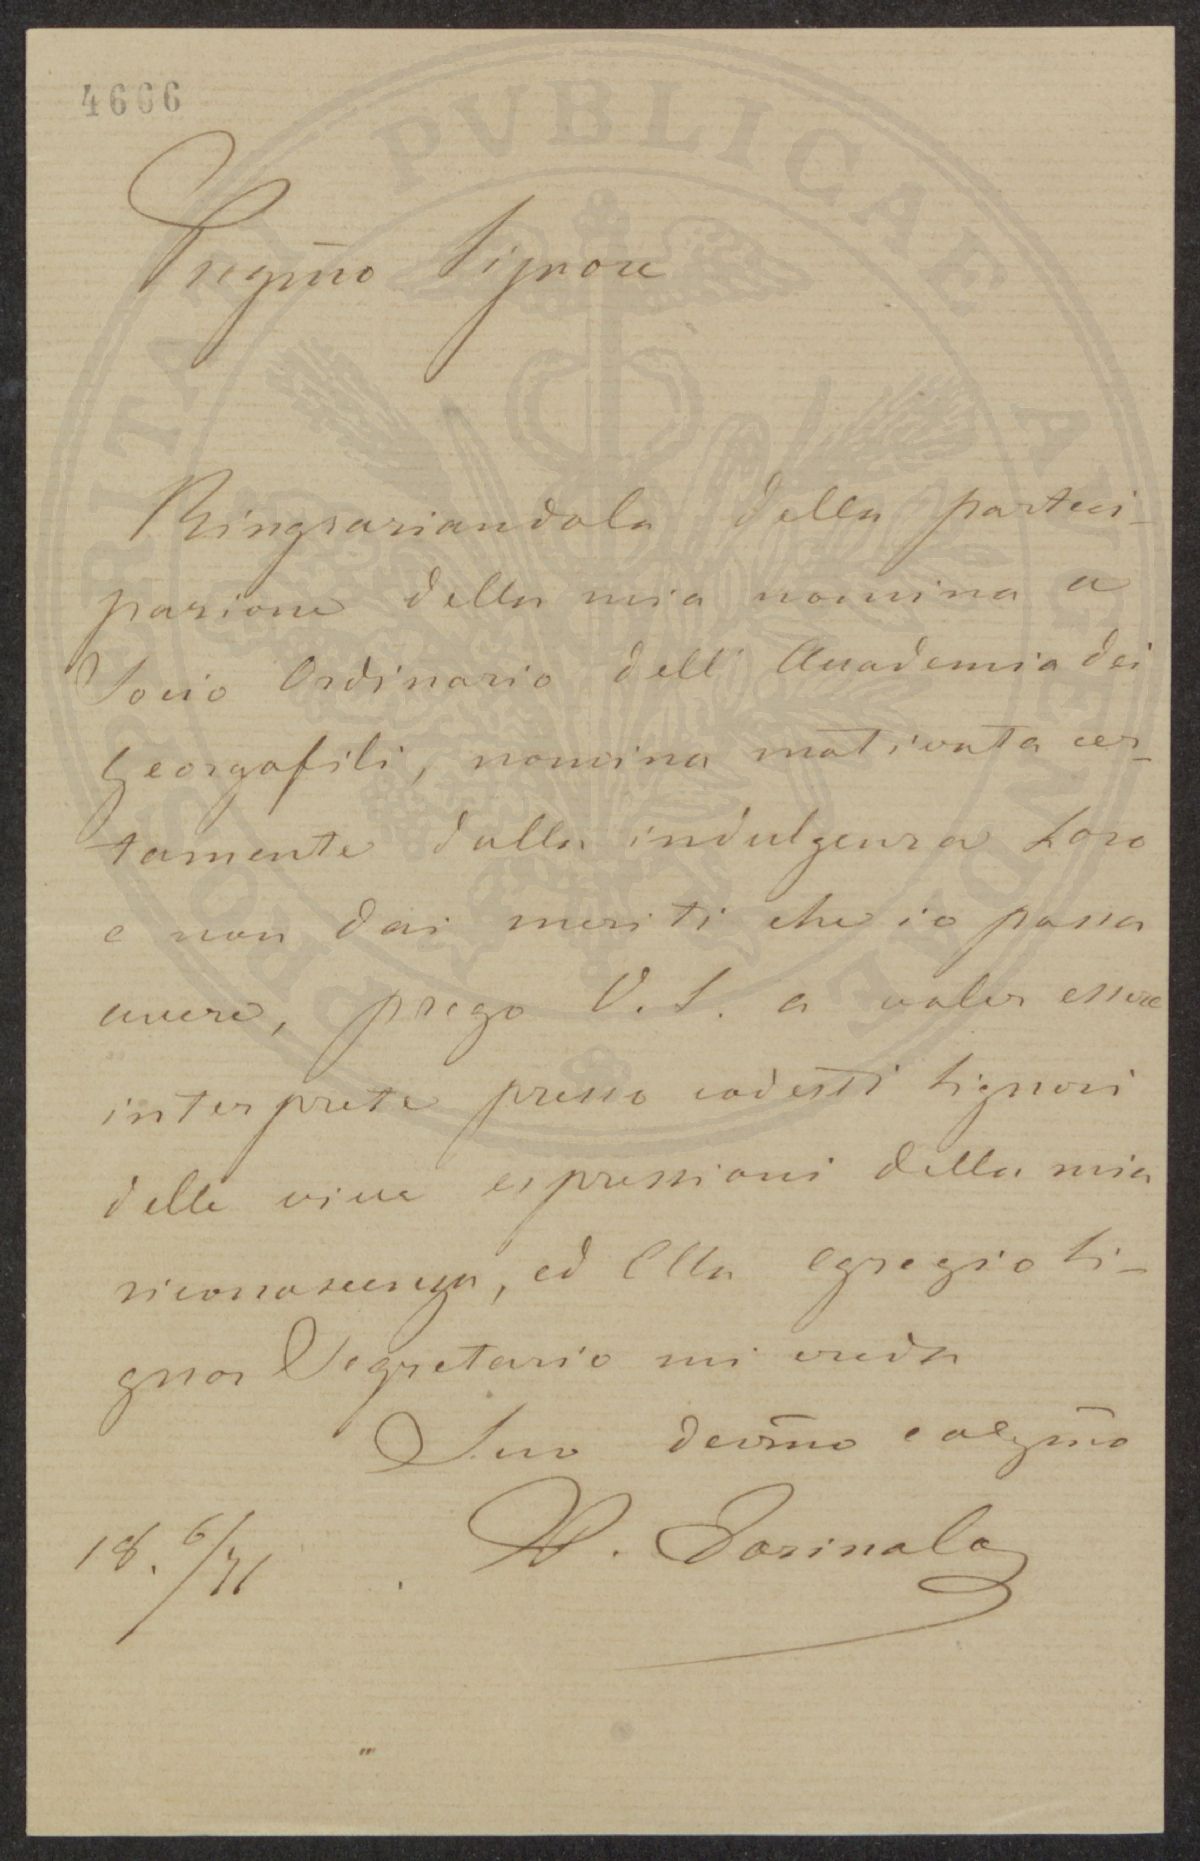 4666
PROSPERITATI PVBLICAE AVGENDAE
Pregmo Signore
Ringraziandola della parteci-
pazione della mia nomina a
Socio Ordinario dell' Accademia dei
Georgofili, nomina motivata cer-
tamente dalla indulgenza Loro
e non dai meriti che io possa
avere, prego V. S. a voler essere
interprete presso codesti Signori
delle vive espressioni della mia
riconoscenza, ed Ella Egregio Si-
gnor Segretario mi creda
Suo devmo e obgmo
18. 6/71